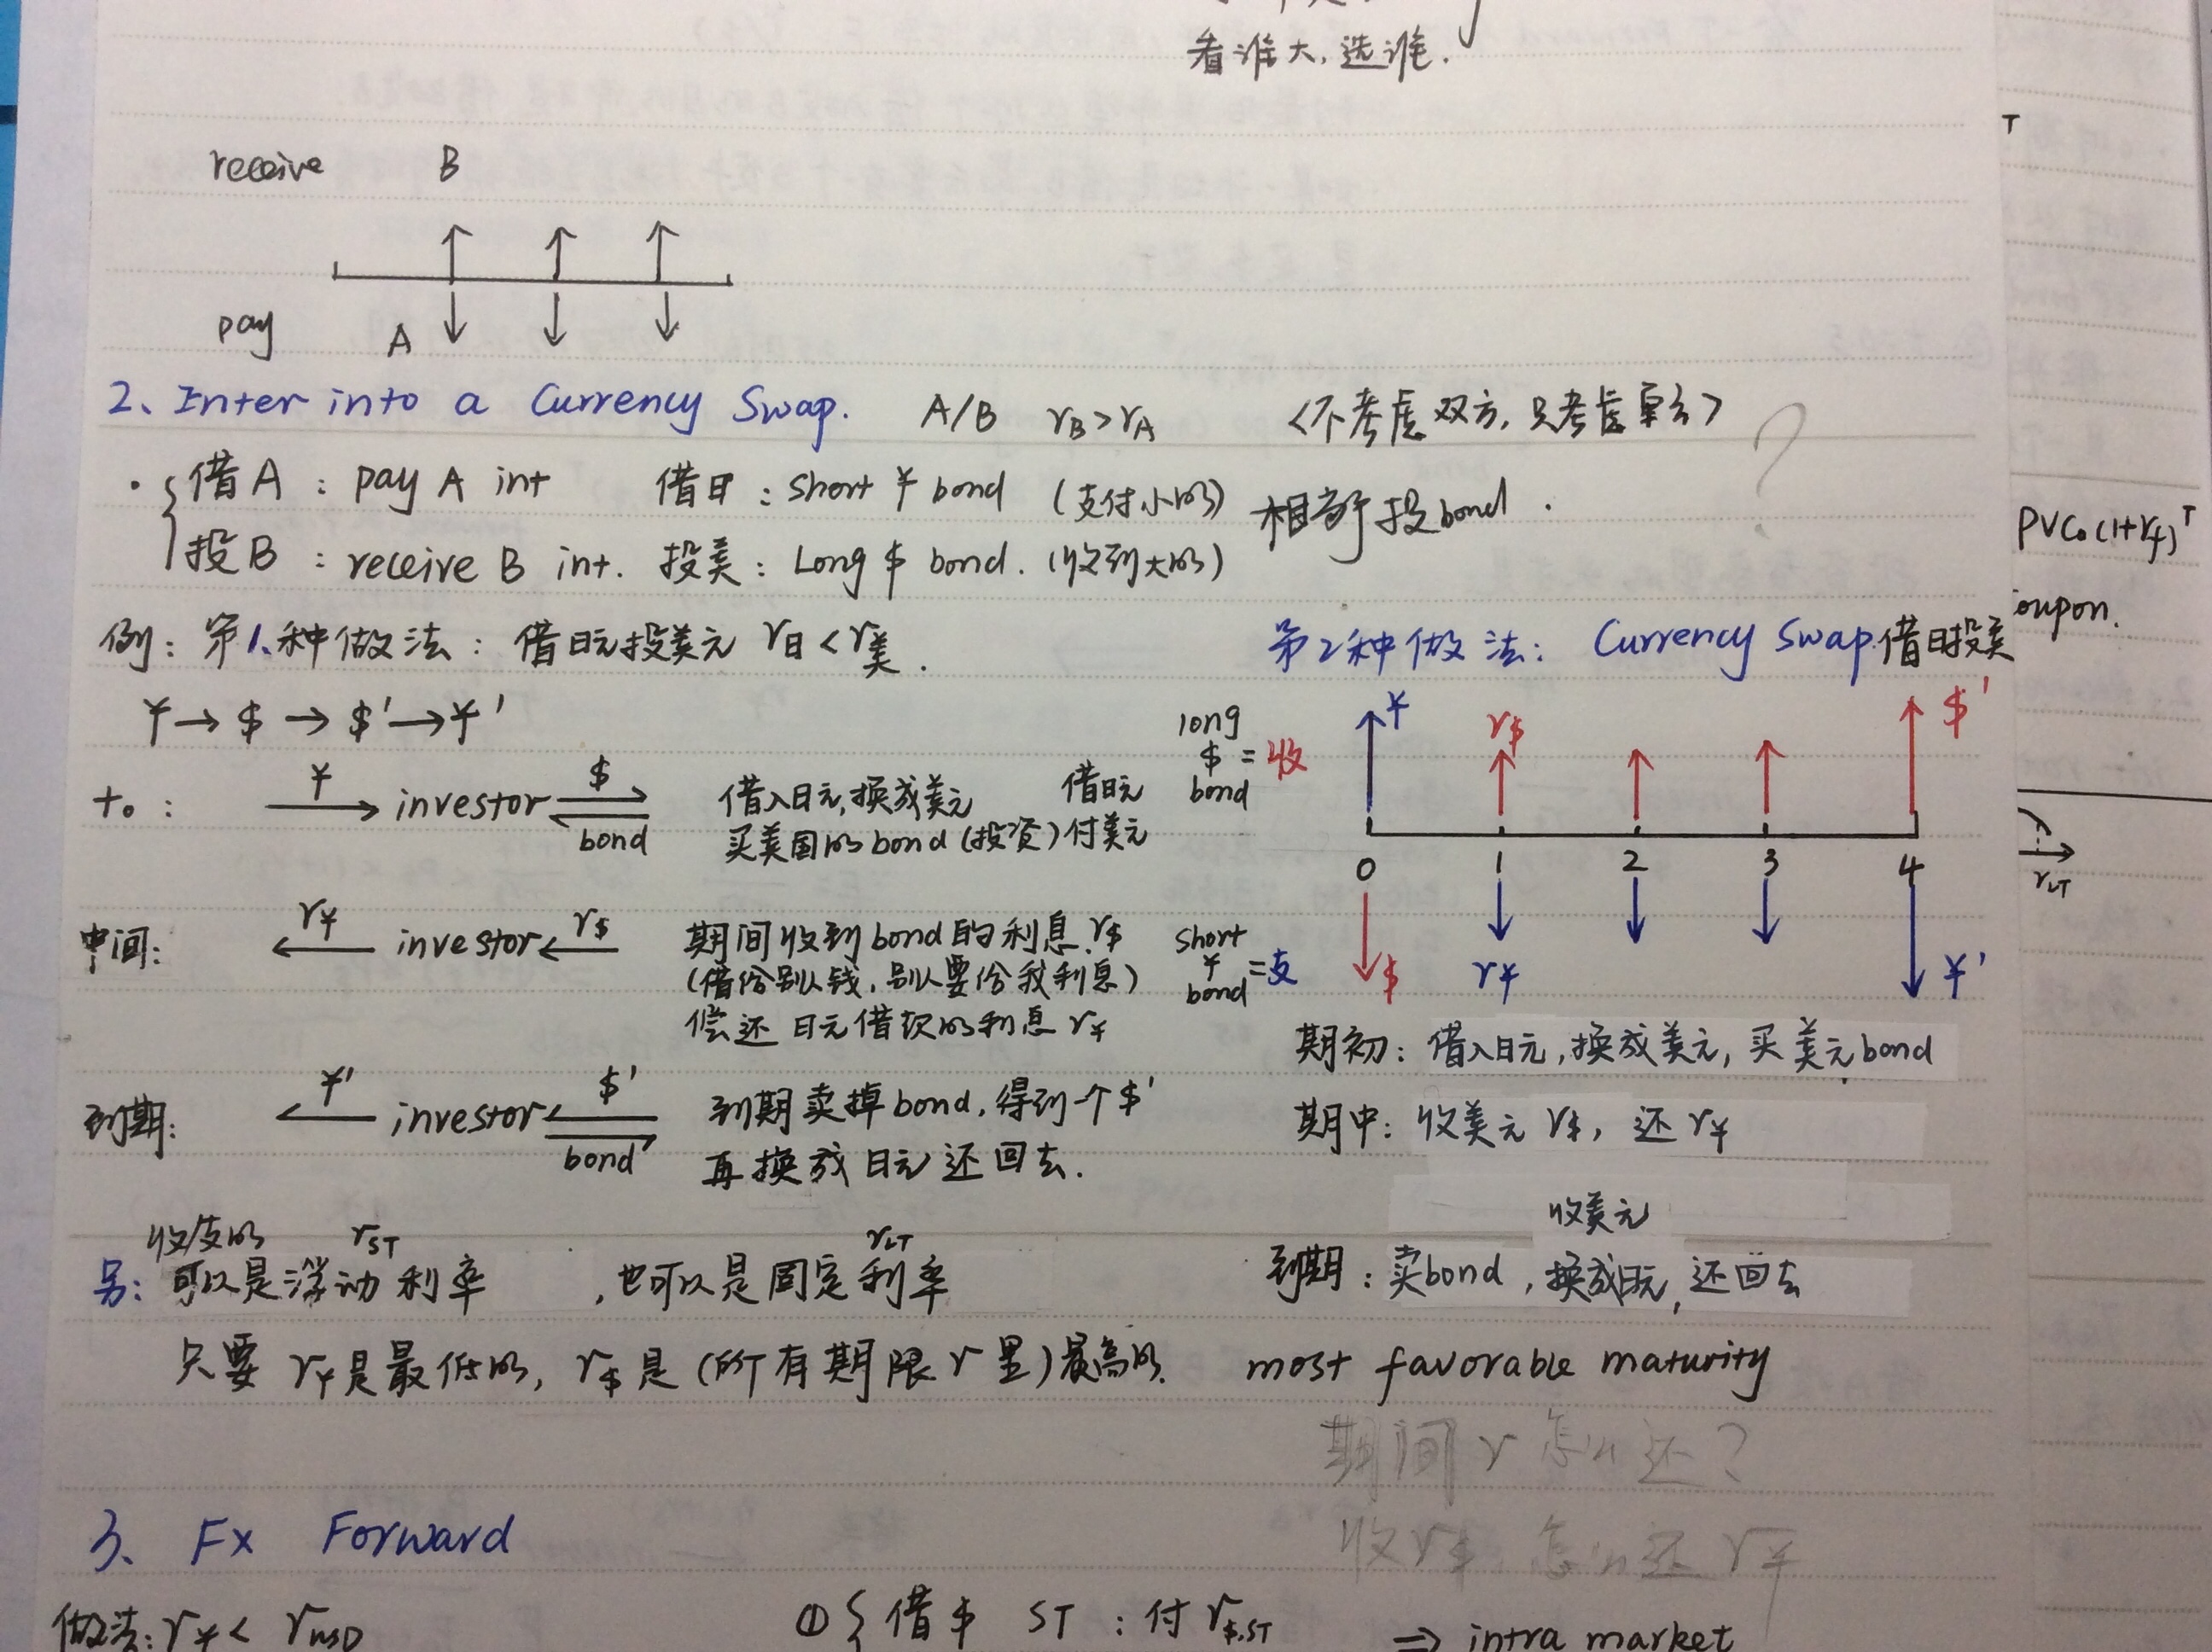 看谁大,选谁.
receive B
pay A
2、Enter into a Currency Swap. A/B r_B>r_A <不考虑双方,只考虑单方>
?
· { 借A : pay A int 借日 : short ¥ bond (支付小的)
投B : receive B int. 投美 : Long $ bond. (收到大的)
相当于投bond .
PVC₀(1+r_f)^T
T
oupon.
例: 第1种做法 : 借日元投美元 r日<r美 .
第2种做法: Currency Swap 借日投美
¥→$→$'→¥'
t₀ : ¥ investor $ bond
借入日元,换成美元
买美国的bond (投资)
借日元
付美元
long $ bond = 收
¥ r$ $'
0 1 2 3 4
$ r¥ ¥'
short ¥ bond = 支
r_LT
中间: r¥ investor r$
期间收到bond的利息 r$
(借给别人钱,别人要给我利息)
偿还日元借款的利息 r¥
到期: ¥' investor $' bond'
到期卖掉bond,得到个$'
再换成日元还回去.
期初: 借入日元,换成美元,买美元bond
期中: 收美元 r$, 还 r¥
收美元
到期: 卖bond ,换成日元,还回去
收/支的 r_ST r_LT
另: 可以是浮动利率 ,也可以是固定利率
只要 r¥是最低的, r$是(所有期限r里)最高的. most favorable maturity
期间r怎么还?
收r$,怎么还r¥
3、FX Forward
做法: r¥< r_USD ①{ 借$ ST : 付r$,ST ⇒ intra market